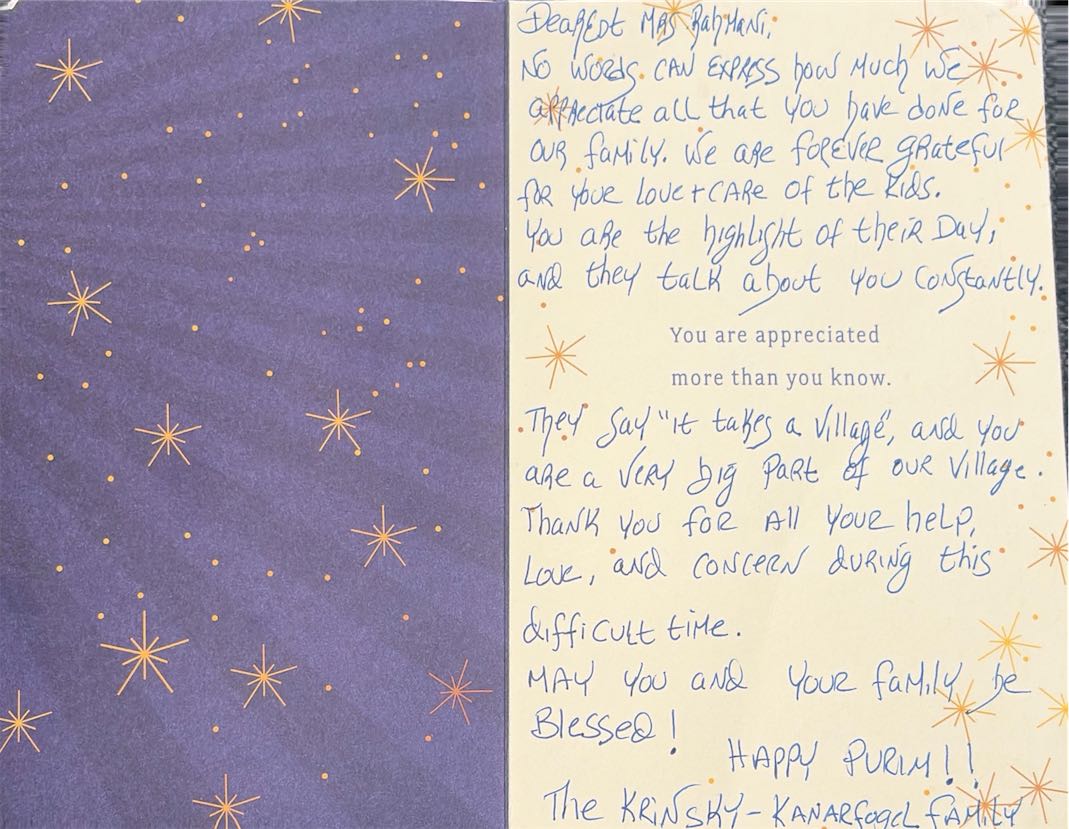 Dearest Mrs Rahmani,
No words can express how much we
appreciate all that you have done for
our family. We are forever grateful
for your love + care of the kids.
You are the highlight of their Day,
and they talk about you constantly.
You are appreciated
more than you know.
They say "it takes a Village", and you
are a very big part of our Village.
Thank you for all your help,
Love, and concern during this
difficult time.
May you and your family be
Blessed!
Happy Purim!!
The Krinsky-Kanarfogel family